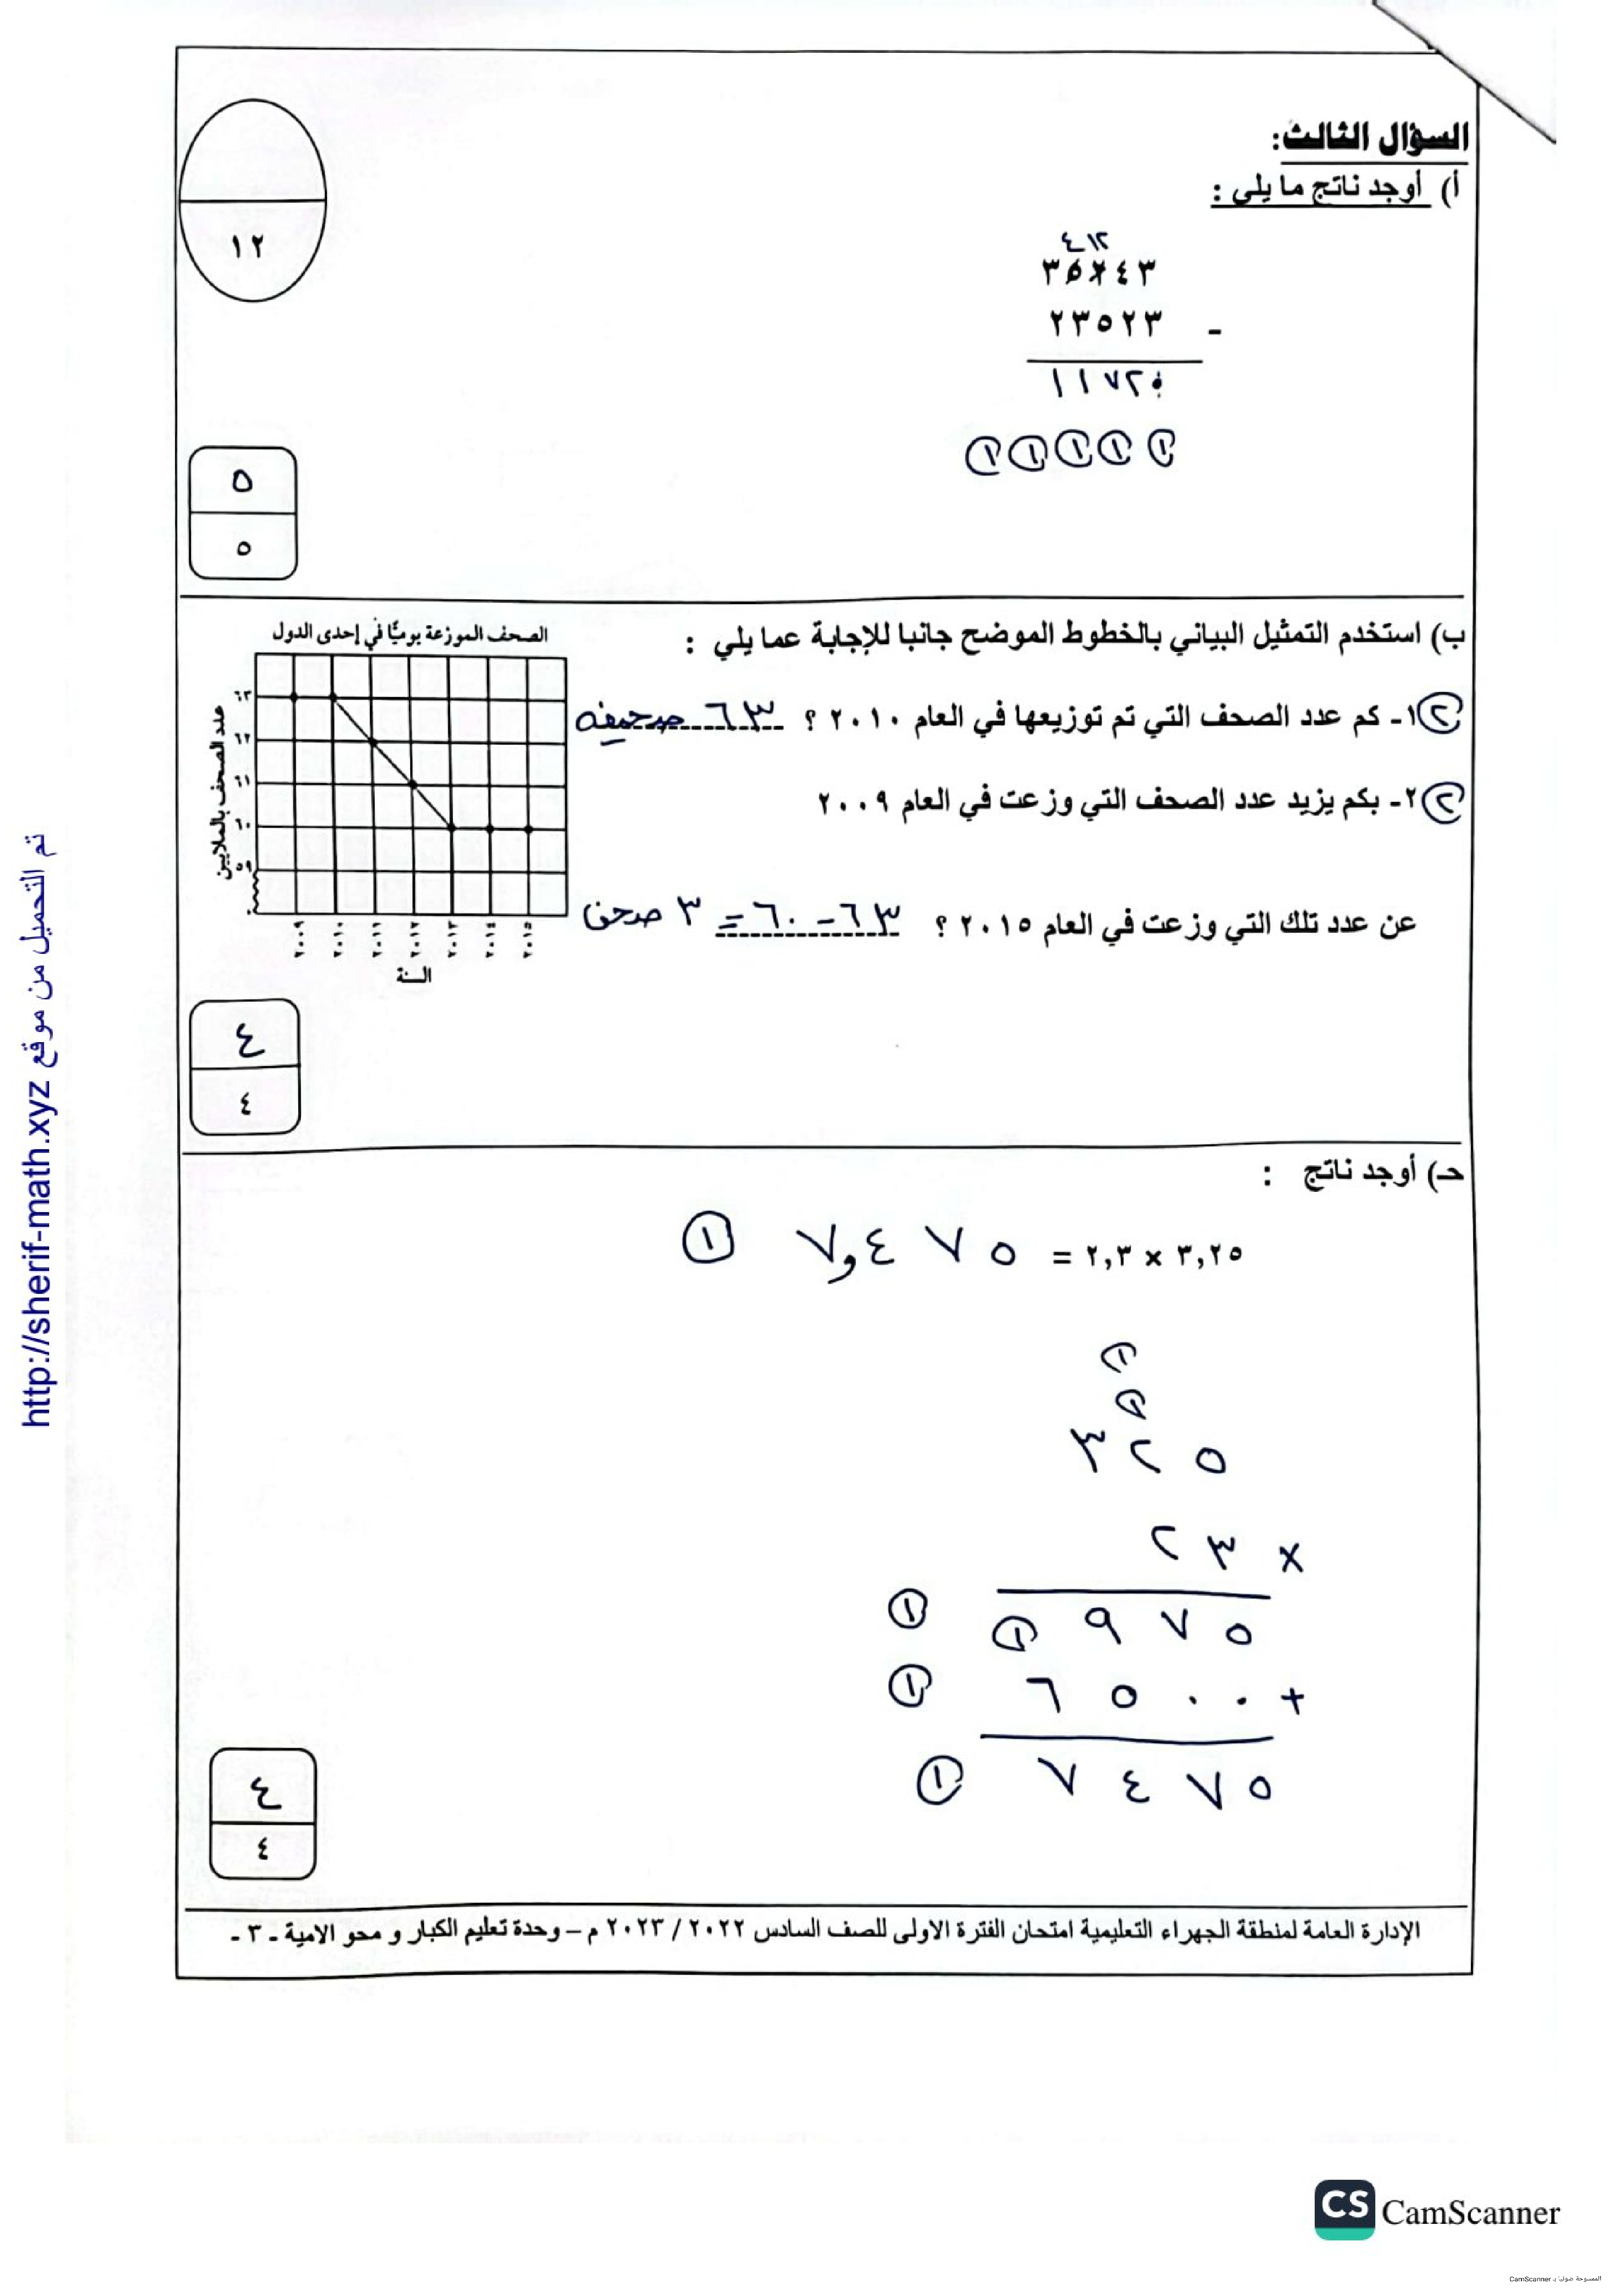 السؤال الثالث:
أ) أوجد ناتج ما يلي :
٤ ١٢
٣٥٢٤٣
٢٣٥٢٣ -
١١٧٢٠
١ ١ ١ ١ ١
١٢
٥
٥
ب) استخدم التمثيل البياني بالخطوط الموضح جانبا للإجابة عما يلي :
٢ ١- كم عدد الصحف التي تم توزيعها في العام ٢٠١٠ ؟ ٦٣ صحيفه
٢ ٢- بكم يزيد عدد الصحف التي وزعت في العام ٢٠٠٩
عن عدد تلك التي وزعت في العام ٢٠١٥ ؟ ٦٣ - ٦٠ = ٣ صحف
الصحف الموزعة يوميًا في إحدى الدول
عدد الصحف بالملايين
٦٣
٦٢
٦١
٦٠
٥٩
٠
٢٠٠٩ ٢٠١٠ ٢٠١١ ٢٠١٢ ٢٠١٣ ٢٠١٤ ٢٠١٥
السنة
٤
٤
حـ) أوجد ناتج :
٣,٢٥ × ٢,٣ = ٧,٤٧٥ ١
١
١
٣٢٥
٢٣ ×
١ ١ ٩٧٥
١ ٦٥٠٠ +
١ ٧٤٧٥
٤
٤
الإدارة العامة لمنطقة الجهراء التعليمية امتحان الفترة الاولى للصف السادس ٢٠٢٢ / ٢٠٢٣ م – وحدة تعليم الكبار و محو الامية - ٣ -
تم التحميل من موقع http://sherif-math.xyz
CS CamScanner
الممسوحة ضوئيا بـ CamScanner